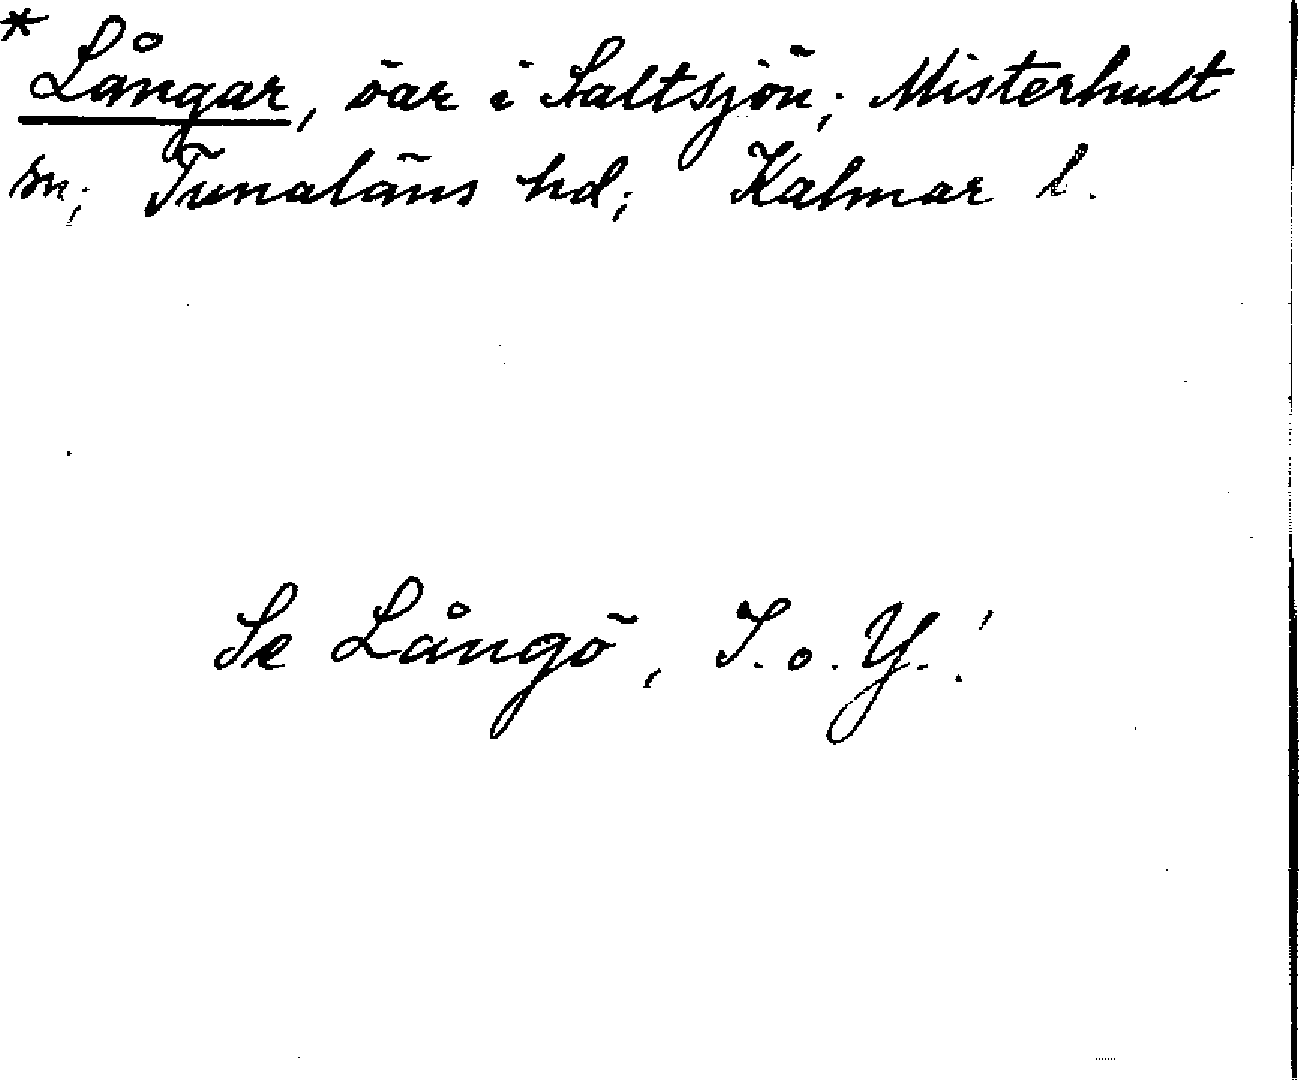 * Långar, öar i Saltsjön; Misterhult
sn; Tunaläns hd; Kalmar l.
Se Långö, S. o. Y.!